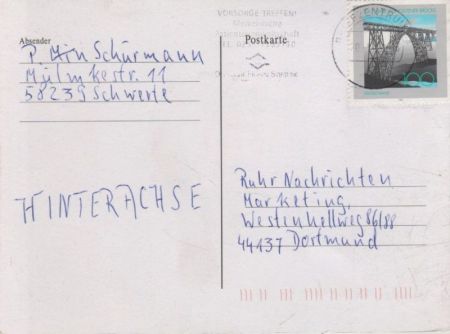 Absender
P. Min Schürmann
Mülmkestr. 11
58239 Schwerte
HINTERACHSE
VORSORGE TREFFEN!
Postkarte
BRIEFZENTRUM
100
Ruhr Nachrichten
Marketing,
Westenhellweg 86/88
44137 Dortmund